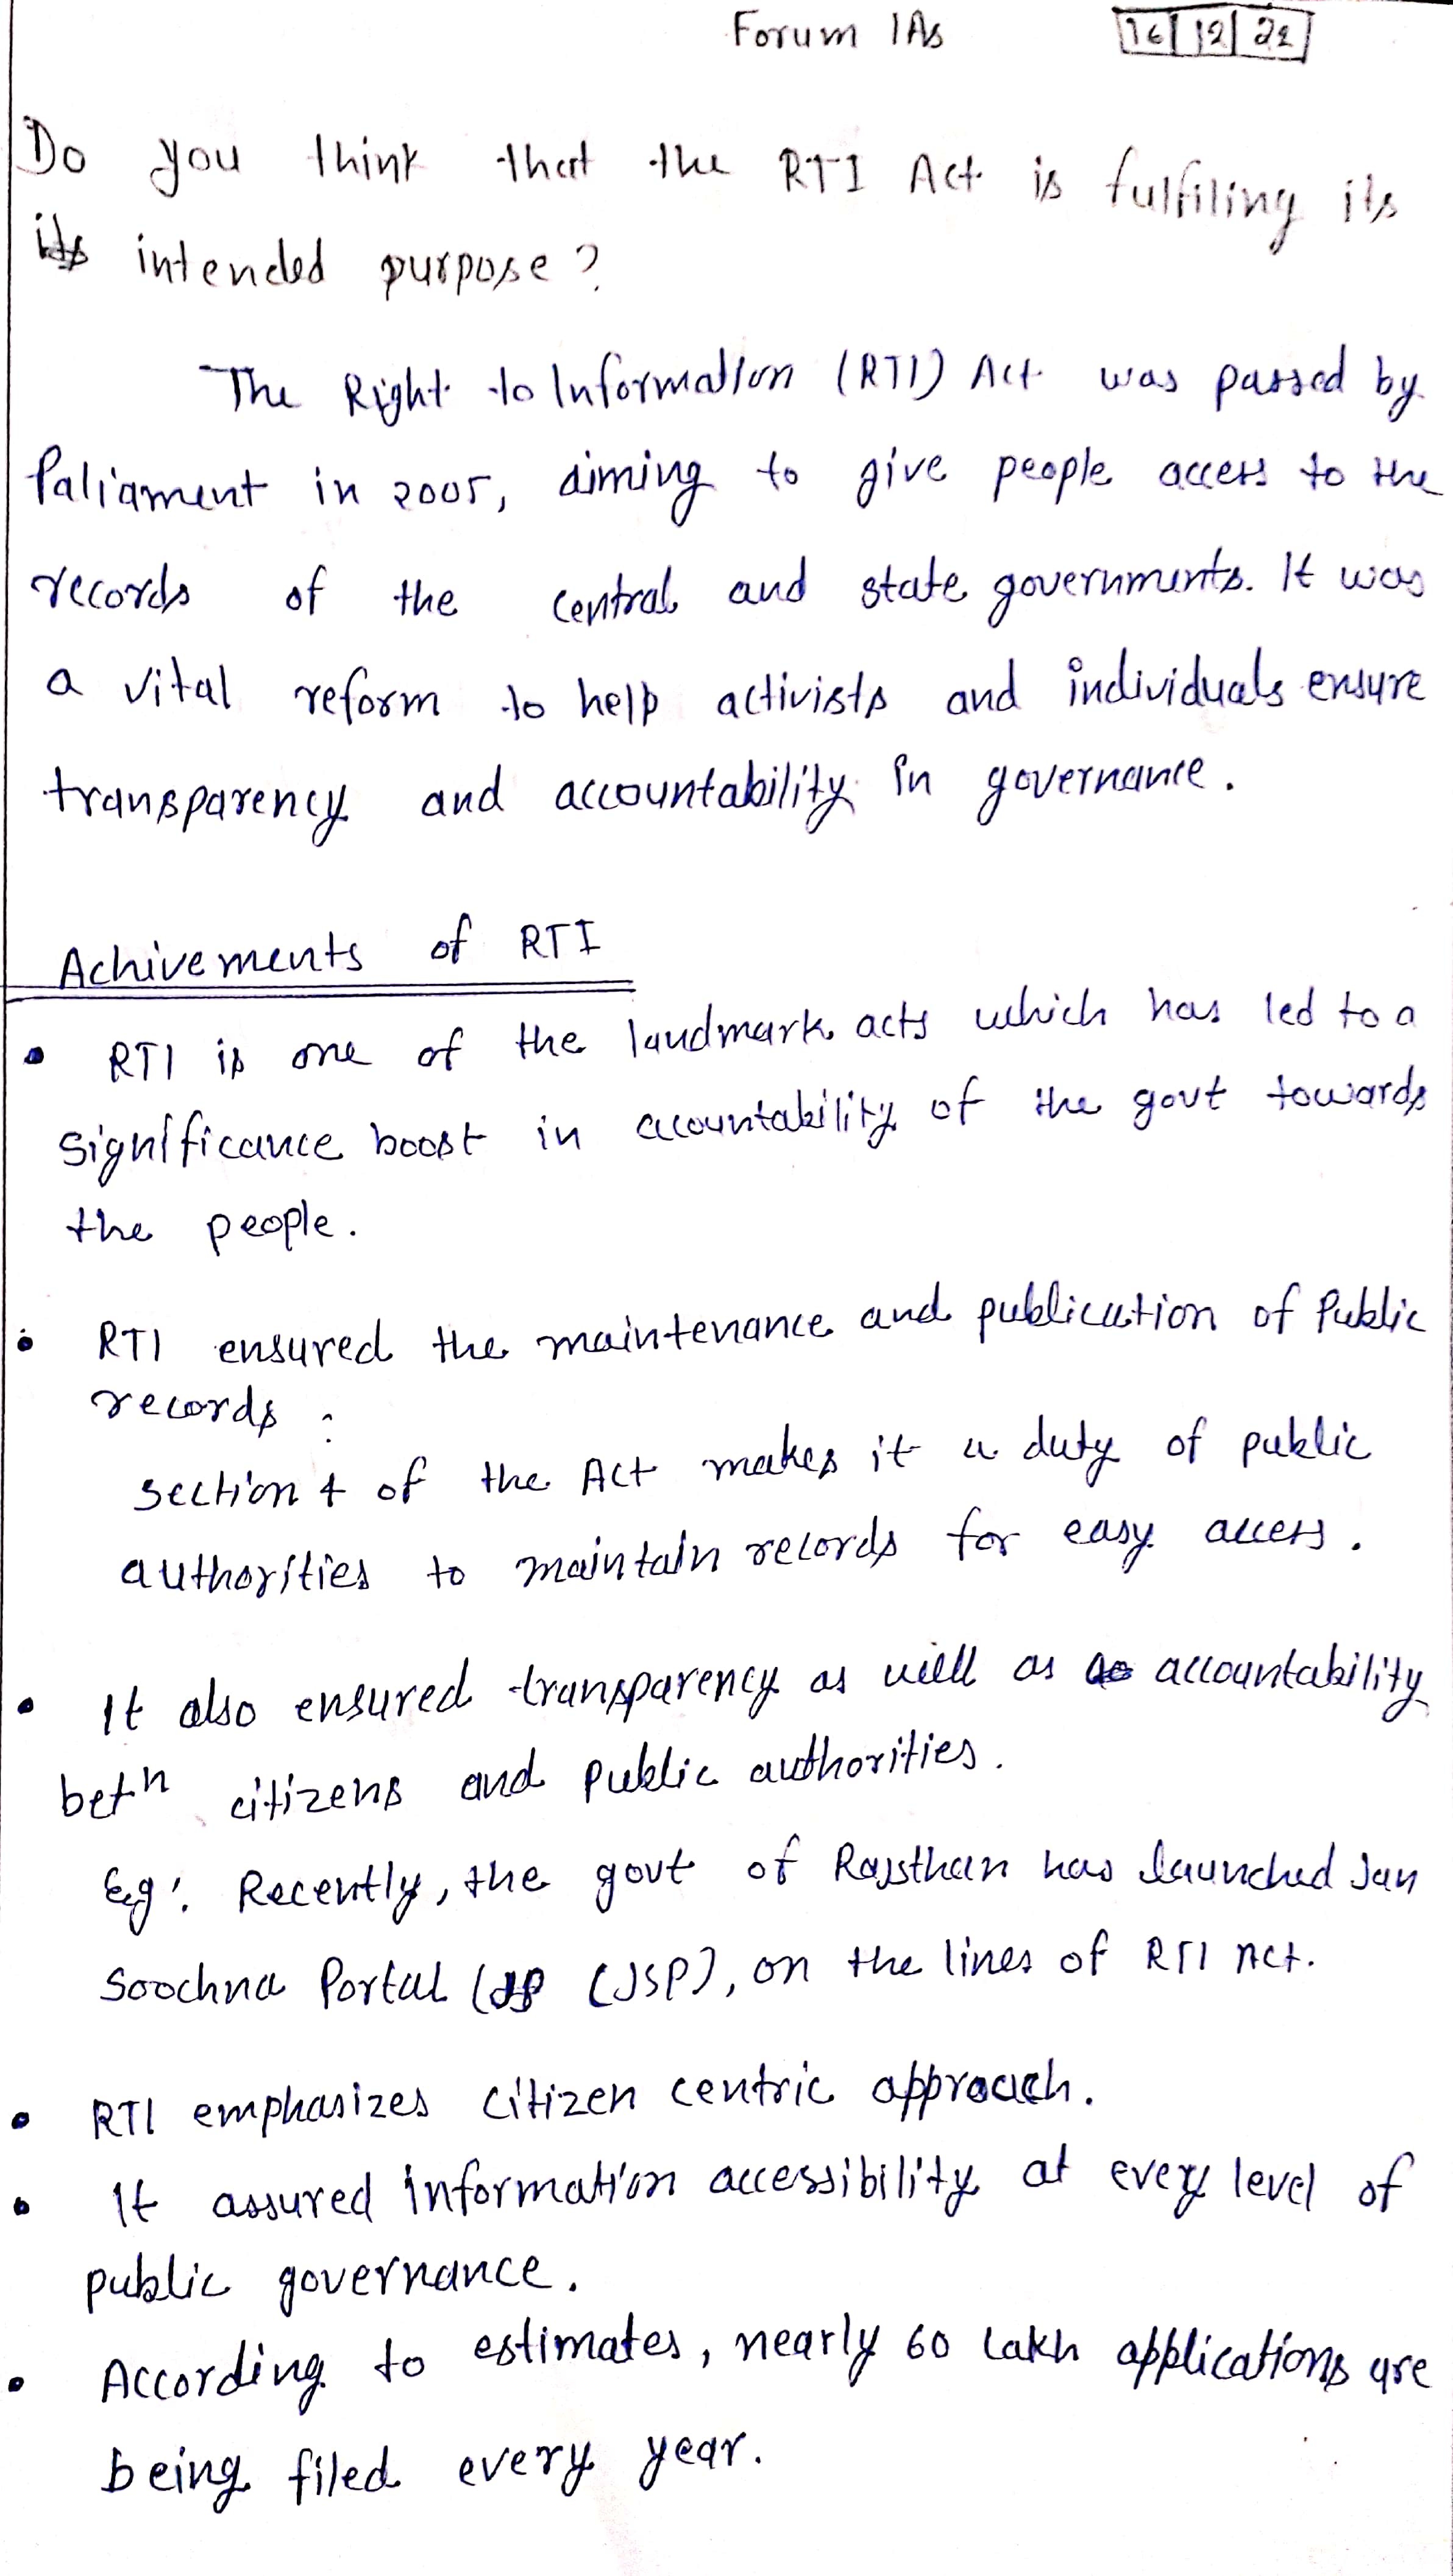 Forum IAs
16/12/22
Do you think that the RTI Act is fulfiling its
its intended purpose?
The Right to Information (RTI) Act was passed by
Paliament in 2005, aiming to give people access to the
records of the central and state governments. It was
a vital reform to help activists and individuals ensure
transparency and accountability in governance.
Achivements of RTI
• RTI is one of the landmark acts which has led to a
significance boost in accountability of the govt towards
the people.
• RTI ensured the maintenance and publication of Public
records :
section 4 of the Act makes it a duty of public
authorities to maintain records for easy access.
• It also ensured transparency as well as accountability
betn citizens and public authorities.
Eg: Recently, the govt of Rajsthan has launched Jan
Soochna Portal (JSP), on the lines of RTI Act.
• RTI emphasizes citizen centric approach.
• It assured information accessibility at every level of
public governance.
• According to estimates, nearly 60 lakh applications are
being filed every year.